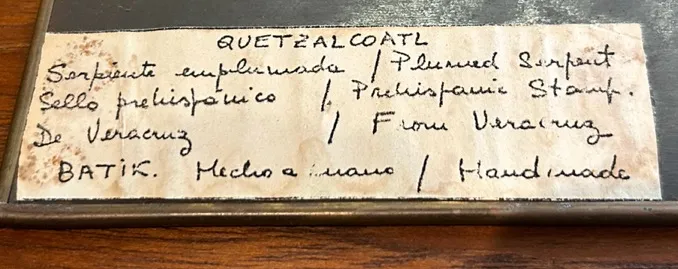 QUETZALCOATL
Serpiente emplumada / Plumed Serpent
Sello prehispánico / Prehispanic Stamp.
De Veracruz / From Veracruz
BATIK. Hecho a mano / Handmade